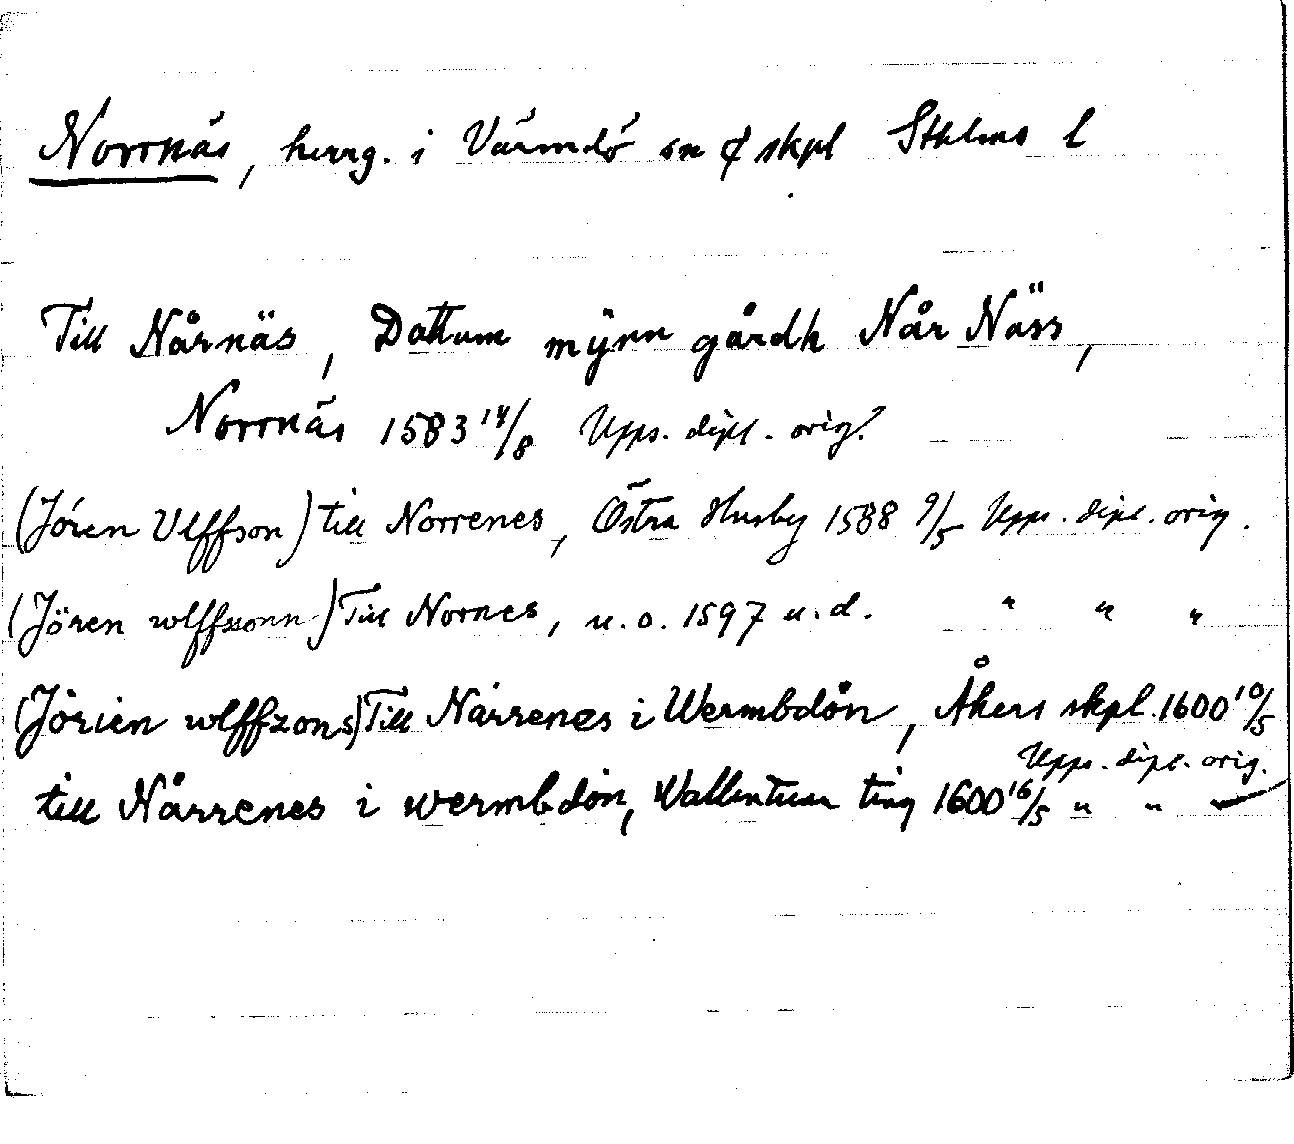 Norrnäs, herrg. i Värmdö sn o skpl Sthlms l
Till Nårnäs, Dattum mÿnn gårdh Når Näss,
Norrnäs 1583 14/8 Upps. dipl. orig.
(Jören Ulffson) till Norrenes, Östra Husby 1588 9/5 Upps. dipl. orig.
(Jören wlffssonn) Till Nornes, u. o. 1597 u. d. " " "
(Jörien wlffzons) Till Nårrenes i Wermbdön, Åkers skpl. 1600 10/5
Upps. dipl. orig.
till Nårrenes i wermbdön, Wallentuna ting 1600 16/5 " "